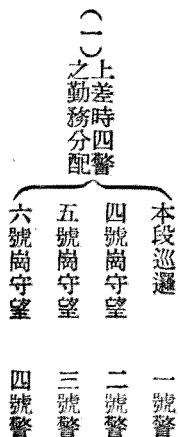 （一）上差時四警
之勤務分配
本段巡邏　一號警
四號崗守望　二號警
五號崗守望　三號警
六號崗守望　四號警